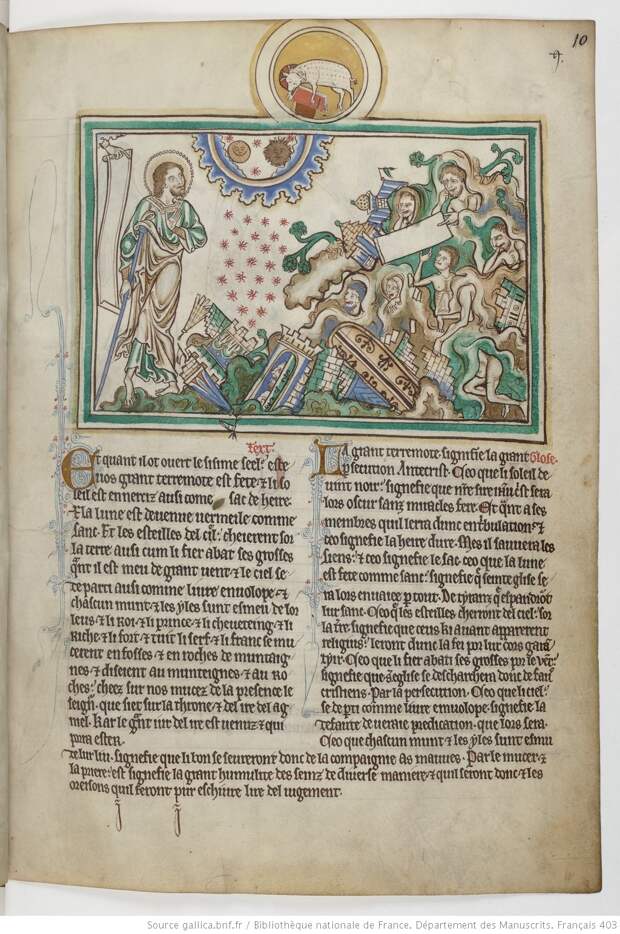 10
text
Et quant il ot ouert le sisme seel: este
uos grant terremote est fete & li so
leil est ennerci ausi come sac de heire.
& la lune est deuenue uermeile comme
sanc. Et les esteilles del ciel cheierent sor
la terre ausi cum li fier abat ses grosses
qnt il est meu de grant uent & le ciel se
departi ausi comme liure enuolope & 
chascun munt & les ysles sunt esmeu de lor
leus & li Roi & li prince & li cheueteing & li
Riche & li fort & tuit li serf & li franc se mu
cerent en fosses & en roches de muntaig
nes & diseient au munteignes & au Ro
ches: cheez sur nos mucez de la presence le
seign que siet sur la throne & del ire del ag
nel. Kar le gnt iur del ire est uenuz & qui
porra ester.
Glose
La grant terremote signifie la grant
persecution Antecrist. Ceo que li soleil de
uint noir: signifie que
lors oscur sanz miracles fere. Et qnt a ses
membres quil ierra dunc en tribulation &
ceo signifie la heire dure. Mes il sauuera les
siens: & ceo signifie le sac. ceo que la lune
est fete comme sanc: signifie q seinte eglise se
ra lors enuaie p tout. De tyranz q espandrot
lur sanc. Ceo q les esteilles cherront del ciel: sor
la tre signifie que ceus ki auant apparerent
religius: lerront dunc la fei por lur cors garan
tyir. Ceo que li fier abati ses grosses por le uent
signifie que eglise se deschargera donc de faus
cristiens. Par la persecution. Ceo que li ciel:
se departi comme liure enuolope: signifie la
defaute de ueraie predication. que lors sera.
Ceo que chascum munt & les ysles sunt esmu
de lur liu: signifie que li bon se seureront donc de la compaignie as mauues. Par le mucer &
la priere: est signifie la grant humilite des seinz de diuerse manere & quil feront donc & les
oreisons quil feront pur eschiure lire del iugement.
Source gallica.bnf.fr / Bibliothèque nationale de France. Département des Manuscrits. Français 403